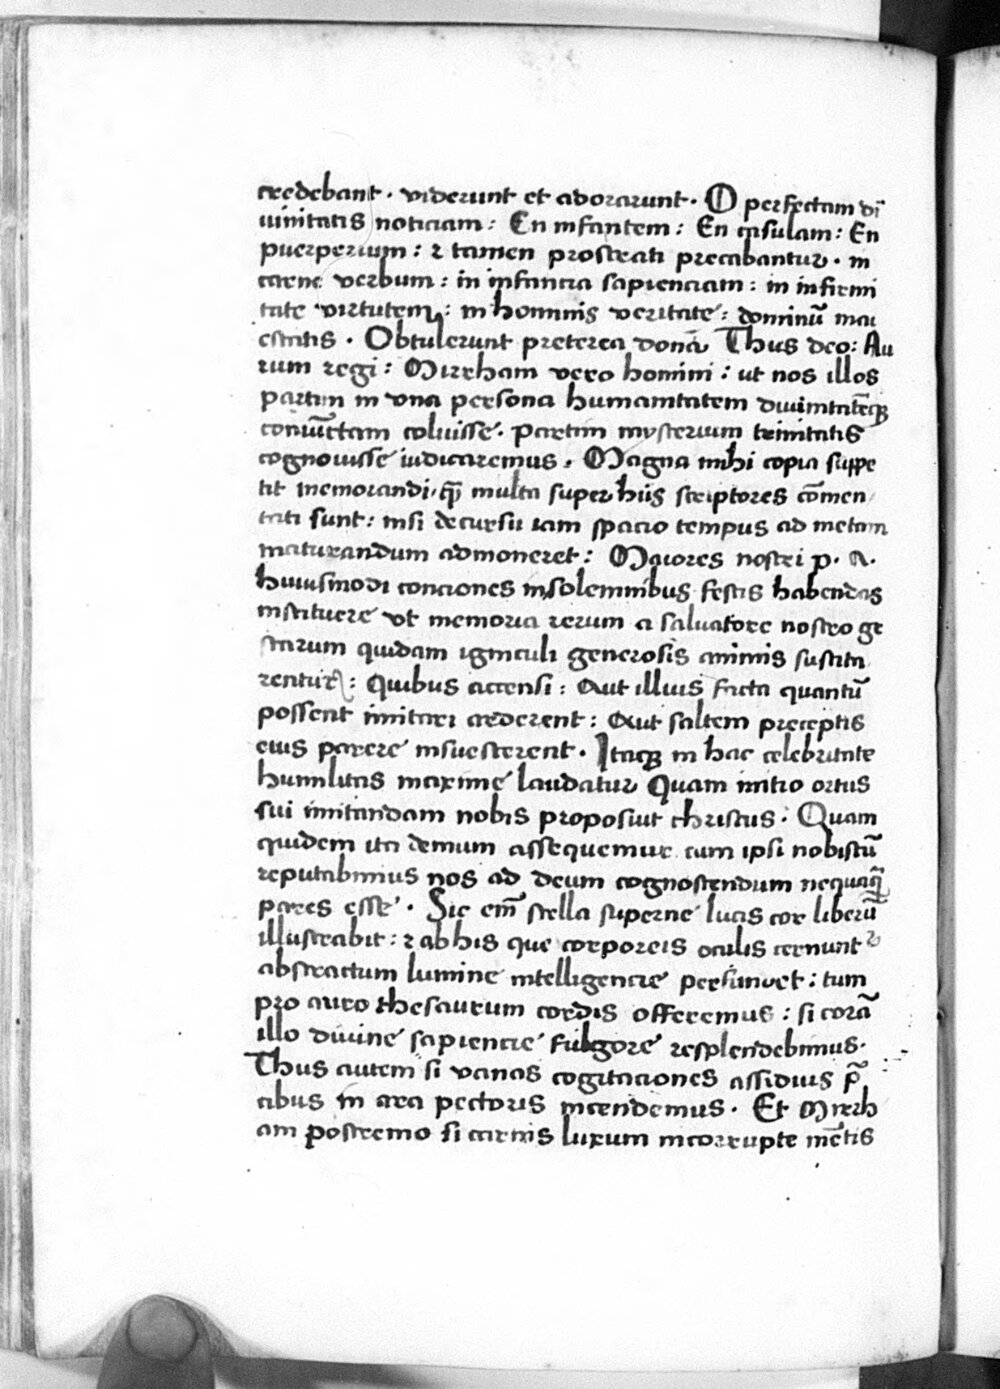 credebant · viderunt et adorarunt · O perfectam di
uinitatis noticiam : En infantem : En casulam : En
puerperium : ⁊ tamen prostrati precabantur · in
carne verbum : in infancia sapienciam : in infirmi
tate virtutem : in hominis veritate : dominū mai
estatis · Obtulerunt preterea dona Thus deo : Au
rum regi : Mirrham vero homini : ut nos illos
partim in una persona humanitatem diuinitatēqꝫ
coniūctam coluisse · partim mysterium trinitatis
cognouisse iudicaremus · Magna mihi copia suppe
tit memorandi, qꝫ multa super hiis scriptores cōmen
tati sunt : nisi decursu iam spacio tempus ad metam
maturandum admoneret : Maiores nostri p · a ·
huiusmodi conciones in solemnibus festis habendas
instituere ut memoria rerum a saluatore nostro ge
starum quidam igniculi generosis animis suscita
rentur : Quibus accensi : Aut illius facta quantū
possent imitari arderent : Aut saltem preceptis
eius parere insuescerent · Itaqꝫ in hac celebritate
humilitas maxime laudatur Quam initio ortus
sui imitandam nobis proposiut christus · Quam
quidem ita demum assequemur cum ipsi nobiscū
reputabimus nos ad deum cognoscendum nequaqꝫ̄
pares esse · Sic em̄ stella superne lucis cor liberū
illustrabit : ⁊ ab his que corporeis oculis cernunt᷑
abstractum lumine intelligencie perfunret : tum
pro auro thesaurum cordis offeremus : si corā
illo diuine sapiencie fulgore resplendebimus ·
Thus autem si vanas cogitaciones assiduis p̄
cibus in ara pectoris incendemus · Et Mirrh
am postremo si carnis luxum incorrupte mētis